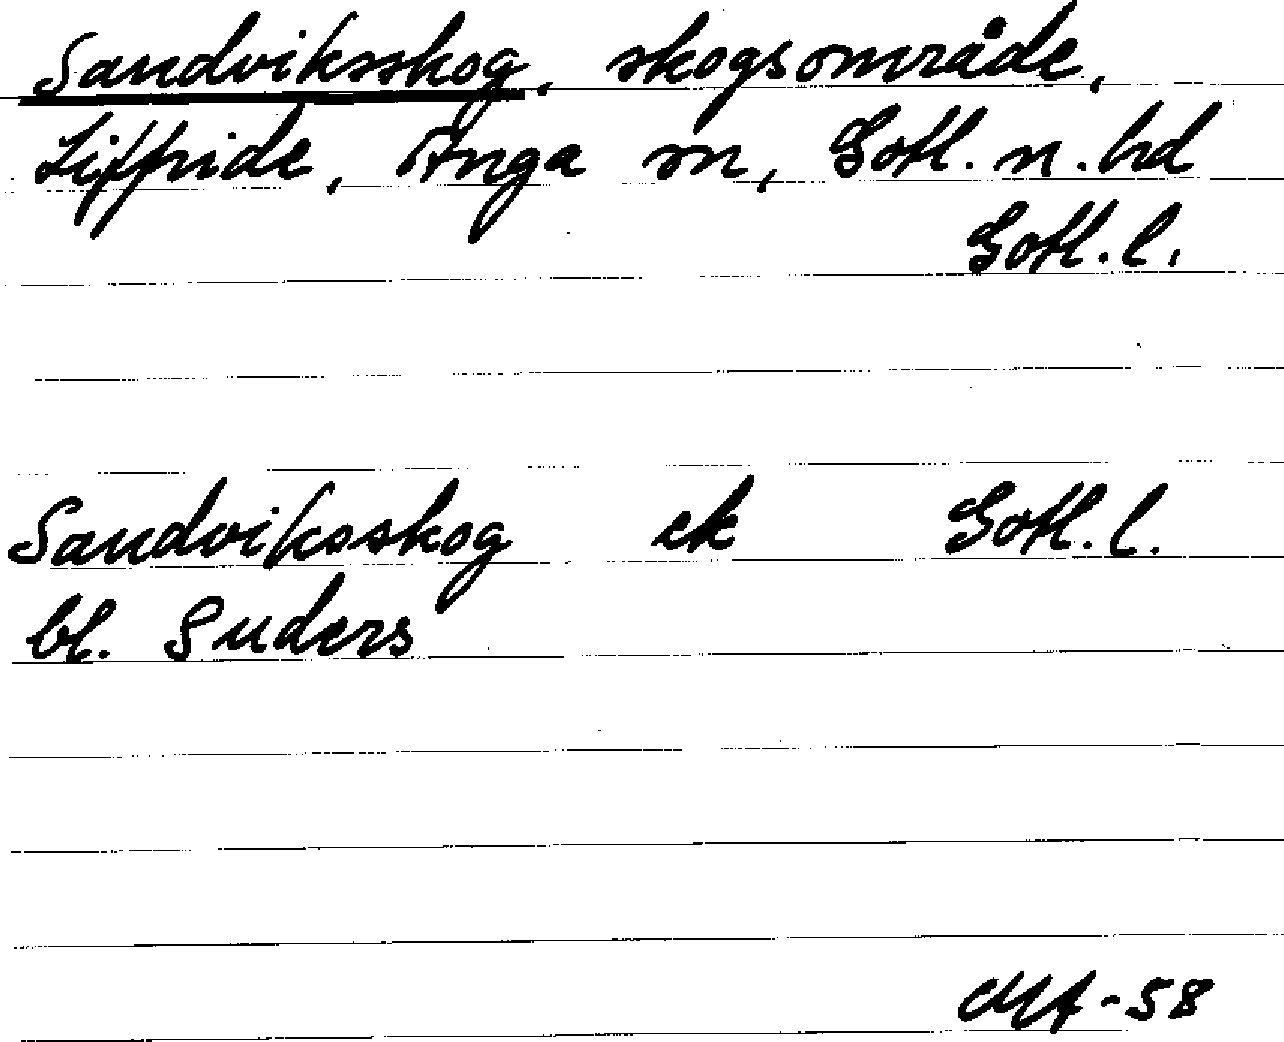 Sandviksskog, skogsområde,
Liffride, Anga sn, Gotl. n. hd
Gotl. l.
Sandviksskog ek Gotl. l.
bl. Suders
-58